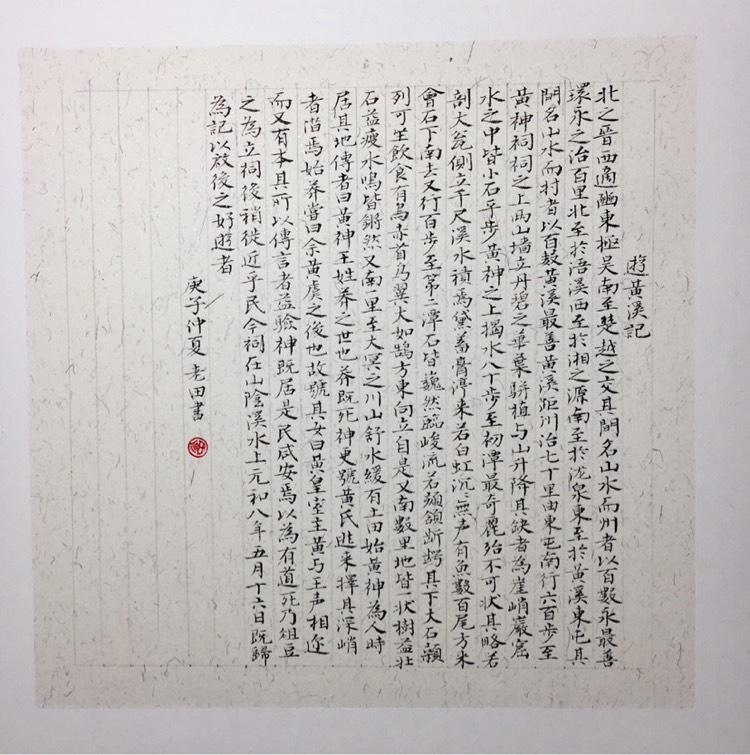 遊黃溪記
北之晉西適豳東極吳南至楚越之交其間名山水而州者以百數永最善
環永之治百里北至於浯溪西至於湘之源南至於瀧泉東至於黃溪東屯其
間名山水而村者以百數黃溪最善黃溪距州治七十里由東屯南行六百步至
黃神祠祠之上兩山墻立丹碧之華葉駢植与山升降其缺者為崖峭巖窟
水之中皆小石平步黃神之上揭水八十步至初潭最奇麗殆不可狀其略若
剖大瓮側立千尺溪水積焉黛蓄膏渟来若白虹沉沉無声有魚數百尾方来
會石下南去又行百步至第二潭石皆巍然臨峻流若頦頷齗齶其下大石雜
列可坐飲食有鳥赤首烏翼大如鵠方東向立自是又南數里地皆一狀樹益壯
石益瘦水鳴皆鏘然又南一里至大冥之川山舒水緩有土田始黃神為人時
居其地傳者曰黃神王姓莽之世也莽既死神更號黃氏逃来擇其深峭
者潛焉始莽嘗曰余黃虞之後也故號其女曰黃皇室主黃与王声相迩
而又有本其所以傳言者益驗神既居是民咸安焉以為有道死乃俎豆
之為立祠後稍徙近乎民今祠在山陰溪水上元和八年五月十六日既歸
為記以啟後之好遊者
庚子仲夏 老田書